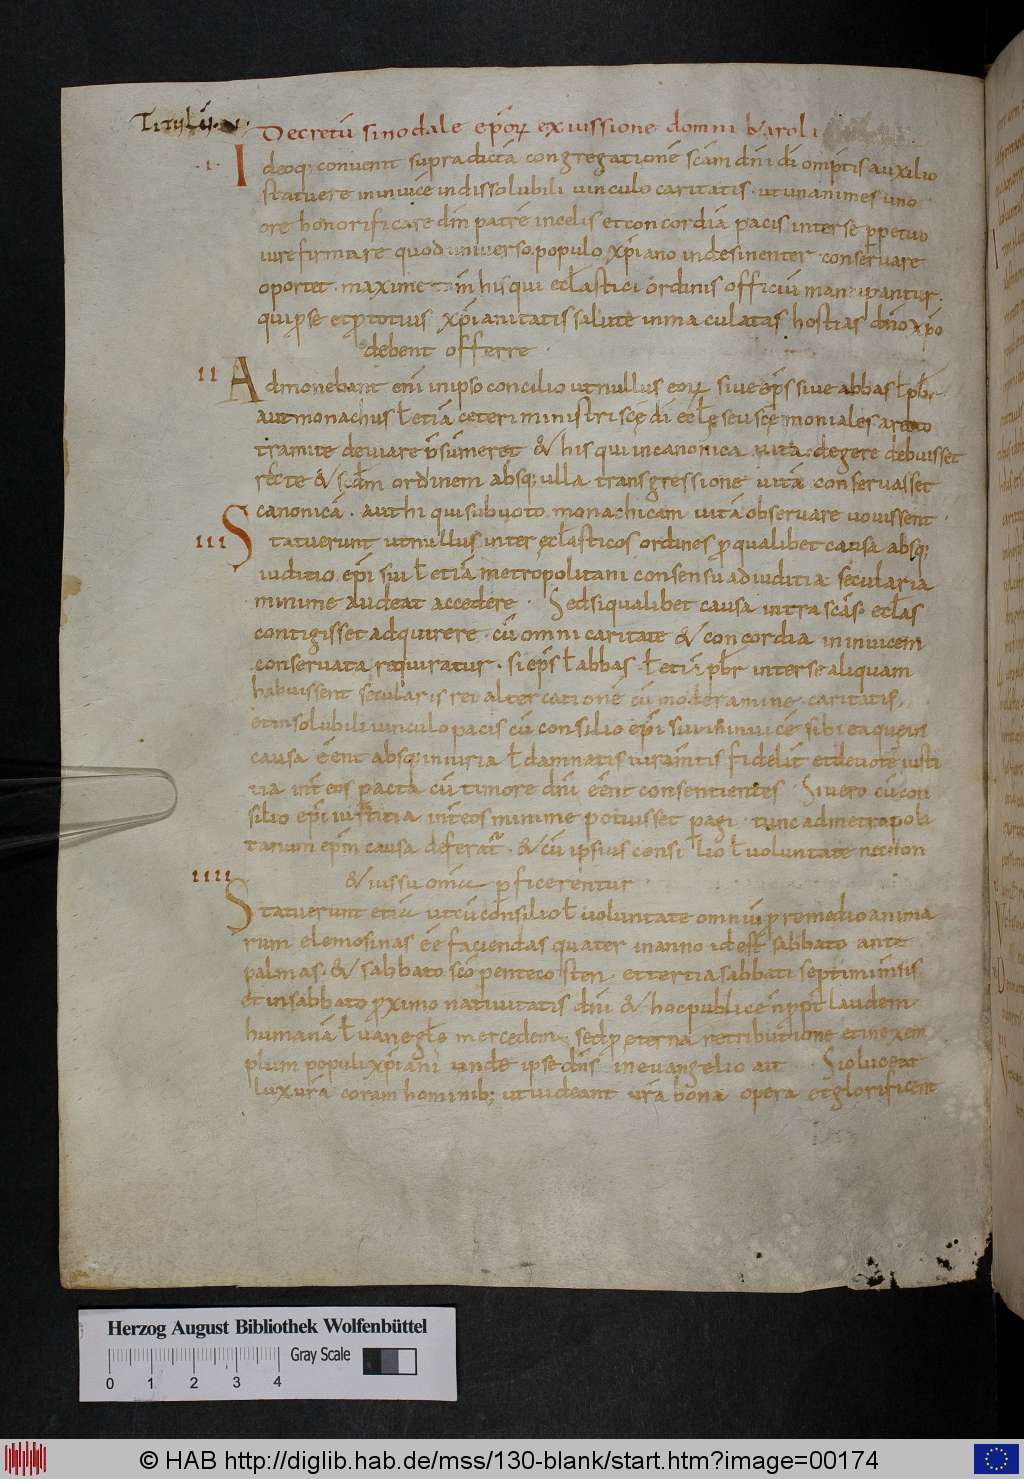 Titulū. v.
Decretū sinodale ep̄oꝝ ex iussione domni karoli
.I.
Ideoq; convenit supradictā congregationē sc̄am dn̄i di om̄ptis auxilio
statuere in invicē indissolubili vinculo caritatis. ut unanimes uno
ore honorificare dm̄ patrē in celis et concordiā pacis inter se ꝑpetuo
iure firmare quod universo populo xp̄iano indesinenter conservare
oportet. maxime tam̄ his qui eccl̄astici ordinis officiū mancipantur.
qui ꝓ se et ꝓ totius xp̄ianitatis salute inmaculatas hostias dn̄o xp̄o
debent offerre.
II
Admonebant eni in ipso concilio ut nullus eoꝝ sive ep̄s sive abbas ł pb̄r
aut monachus ł etiā ceteri ministri sc̄ę di eccl̄ę seu sc̄ę moniales arcto
tramite deviare p̄sumeret & his qui in canonica vita degere debuisset
recte & sc̄dm ordinem absq; ulla transgressione vitā conservasset
canonicā. aut hi qui sub voto monachicam vitā observare vovissent.
III
Statuerunt ut nullus inter eccl̄asticos ordines ꝓ qualibet causa absq;
iuditio ep̄i sui ł etiā metropolitani consensu ad iuditia secularia
minime audeat accedere. Sed si qualibet causa intra sc̄as eccl̄as
contigisset adquirere. cū omni caritate & concordia in invicem
conservata requiratur. si ep̄s ł abbas ł etiā pb̄r inter se aliquam
habuissent secularis rei altercationē cū moderamine caritatis,
et insolubili vinculo pacis cū consilio ep̄i sui in invicē sibi ea que in
causa eent absq; iniuria ł damnatis iuram̄tis fidelit̄ et devote iusti
tia int̄ eos pacta cū timore dn̄i eent consentientes. Si vero cū con
silio ep̄i iustitia int̄ eos minime potuisset pagi. tunc ad metropoli
tanum ep̄m causa deferat̄. & cū ipsius consilio ł voluntate necnon
& iussu omīa ꝑficerentur.
IIII
Statuerunt etiā ut cū consilio ł voluntate omniū ꝓ remedio anima
rum elemosinas ēē faciendas quater in anno id est sabbato ante
palmas. & sabbato sc̄o pentecosten. et tertia sabbati septimi m̄sis
et in sabbato ꝓximo nativitatis dn̄i & hoc publice n̄ ꝓpt̄ laudem
humanā ł vanę gl̄ę mercedem sed ꝓ ęterna retributione et in exem
plum populi xp̄iani unde ipse dn̄s in evangelio ait Sic luceat
lux vrā coram hominib; ut videant vrā bona opera et glorificent
Herzog August Bibliothek Wolfenbüttel
Gray Scale
0 1 2 3 4
© HAB http://diglib.hab.de/mss/130-blank/start.htm?image=00174